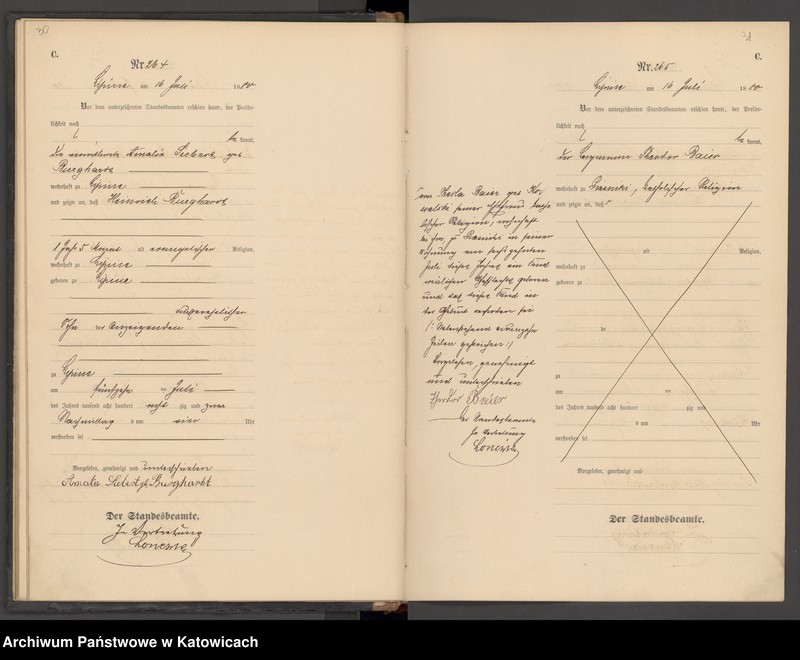 C.
Nr. 264
Lipine am 16 Juli 1880
Vor dem unterzeichneten Standesbeamten erschien heute, der Persön-
lichkeit nach
kannt,
die verwittwete Amalia geb
Burghardt
wohnhaft zu Lipine
und zeigte an, daß Heinrich Burghardt
1 Jahr 5 Monate alt evangelischer Religion,
wohnhaft zu Lipine
geboren zu Lipine
außerehelicher
Sohn der Anzeigenden
zu Lipine
am fünfzehn ten Juli
des Jahres tausend acht hundert acht zig und
Nachmittag s um vier Uhr
verstorben sei
Vorgelesen, genehmigt und unterschrieben
Burghardt
Der Standesbeamte.
In Vertretung
31
C.
Nr. 265
Lipine am 16 Juli 1880
Vor dem unterzeichneten Standesbeamten erschien heute, der Persön-
lichkeit nach
kannt,
der Bergmann Theodor Baier
wohnhaft zu Piasniki, katholischer Religion
und zeigte an, daß
alt Religion,
wohnhaft zu
geboren zu
de
zu
am ten
des Jahres tausend acht hundert zig und
s um Uhr
verstorben sei
Vorgelesen, genehmigt und
Der Standesbeamte.
von Baier geb Ko-
walski seiner Ehefrau katho-
lischer Religion, wohnhaft
bei ihm, zu Piasniki in seiner
Wohnung am sechszehnten
Juli dieses Jahres ein Kind
weiblichen Geschlechts geboren
und daß dieses Kind in
der Geburt verstorben sei
Zeilen gestrichen :/
Vorgelesen, genehmigt
und unterschrieben
Theodor Baier
Der Standesbeamte
In Vertretung
Archiwum Państwowe w Katowicach